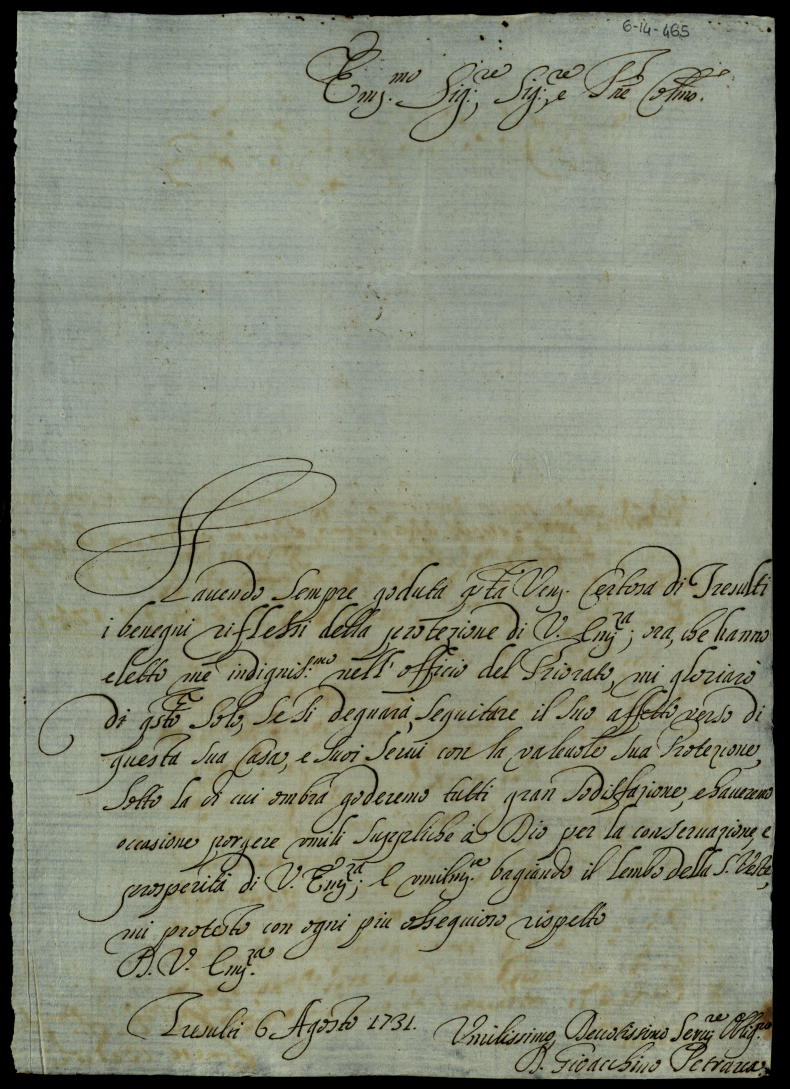 6-14-465
Em.mo Sig.re, Sig.re, e Pne Colmo.
Havendo sempre goduta q.ta Ven. Certosa di Tresulti
i benegni riflessi della protezione di V. Em.za; ora, che hanno
eletto me indignis.mo nell' officio del Priorato, mi gloriarò
di q.sto solo, se si degnarà, seguitare il suo affetto verso di
questa sua Casa, e suoi servi con la valevole sua Protezione,
sotto la di cui ombra goderemo tutti gran sodisfazione, e haveremo
occasione porgere umili suppliche à Dio per la conservazione, e
prosperità di V. Em.za; E umilm.e baciando il lembo della S. Veste,
mi protesto con ogni piu ossequioso rispetto
D. V. Em.za
Tresulti 6 Agosto 1731.
Umilissimo, Devotissimo Serv.re Oblig.mo
D. Gioacchino Petrarca